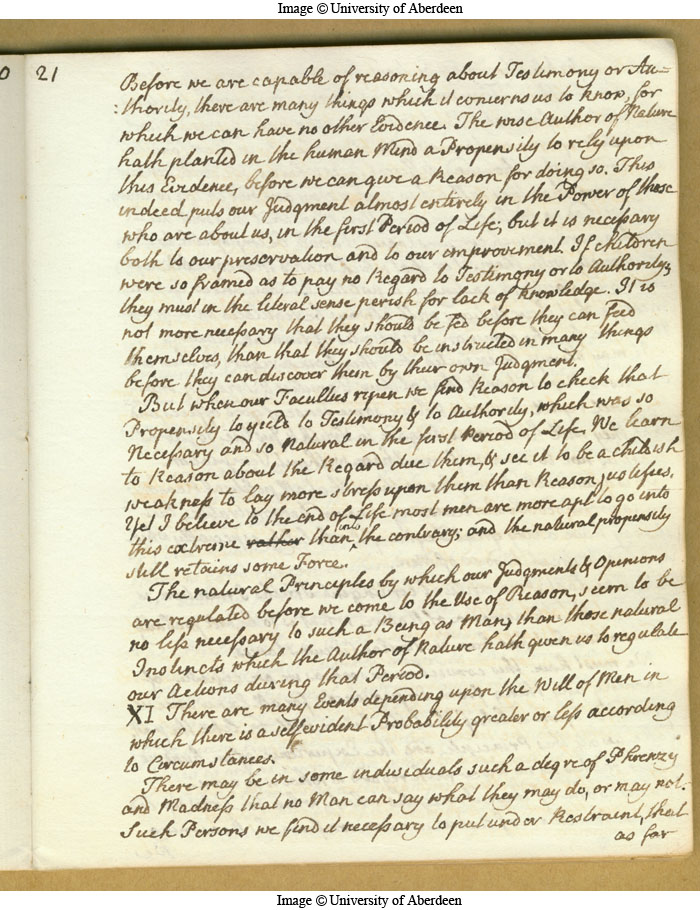 Image © University of Aberdeen
0 21
Before we are capable of reasoning about Testimony or Au=
:thority, there are many things which it concerns us to know, for
which we can have no other Evidence. The wise Author of Nature
hath planted in the human Mind a Propensity to rely upon
this Evidence, before we can give a Reason for doing so. This
indeed puts our Judgment almost entirely in the Power of those
who are about us, in the first Period of Life; but it is necessary
both to our preservation and to our improvement. If children
were so framed as to pay no Regard to Testimony or to Authority,
they must in the literal sense perish for lack of knowledge. It is
not more necessary that they should be fed before they can feed
themselves, than that they should be instructed in many things
before they can discover them by their own Judgment.
But when our Faculties ripen we find Reason to check that
Propensity to yield to Testimony & to Authority, which was so
Necessary and so natural in the first Period of Life. We learn
to Reason about the Regard due them, & see it to be a childish
weakness to lay more stress upon them than Reason justifies.
Yet I believe to the end of Life most men are more apt to go into
this extreme rather than into the contrary; and the natural propensity
still retains some Force.
The natural Principles by which our Judgments & Opinions
are regulated before we come to the Use of Reason, seem to be
no less necessary to such a Being as Man, than those natural
Instincts which the Author of Nature hath given us to regulate
our Actions during that Period.
XI There are many Events depending upon the Will of Men in
which there is a selfevident Probability greater or less according
to Circumstances.
There may be in some individuals such a degre of Phrenzy
and Madness that no Man can say what they may do, or may not.
Such Persons we find it necessary to put under Restraint, that
as far
Image © University of Aberdeen